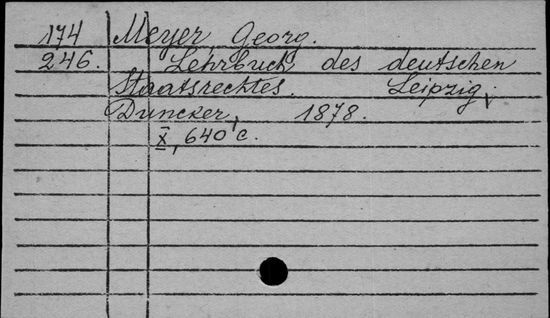 174 Meyer Georg.
246. Lehrbuch des deutschen
Staatsrechtes. Leipzig,
Duncker, 1878.
X, 640 c.